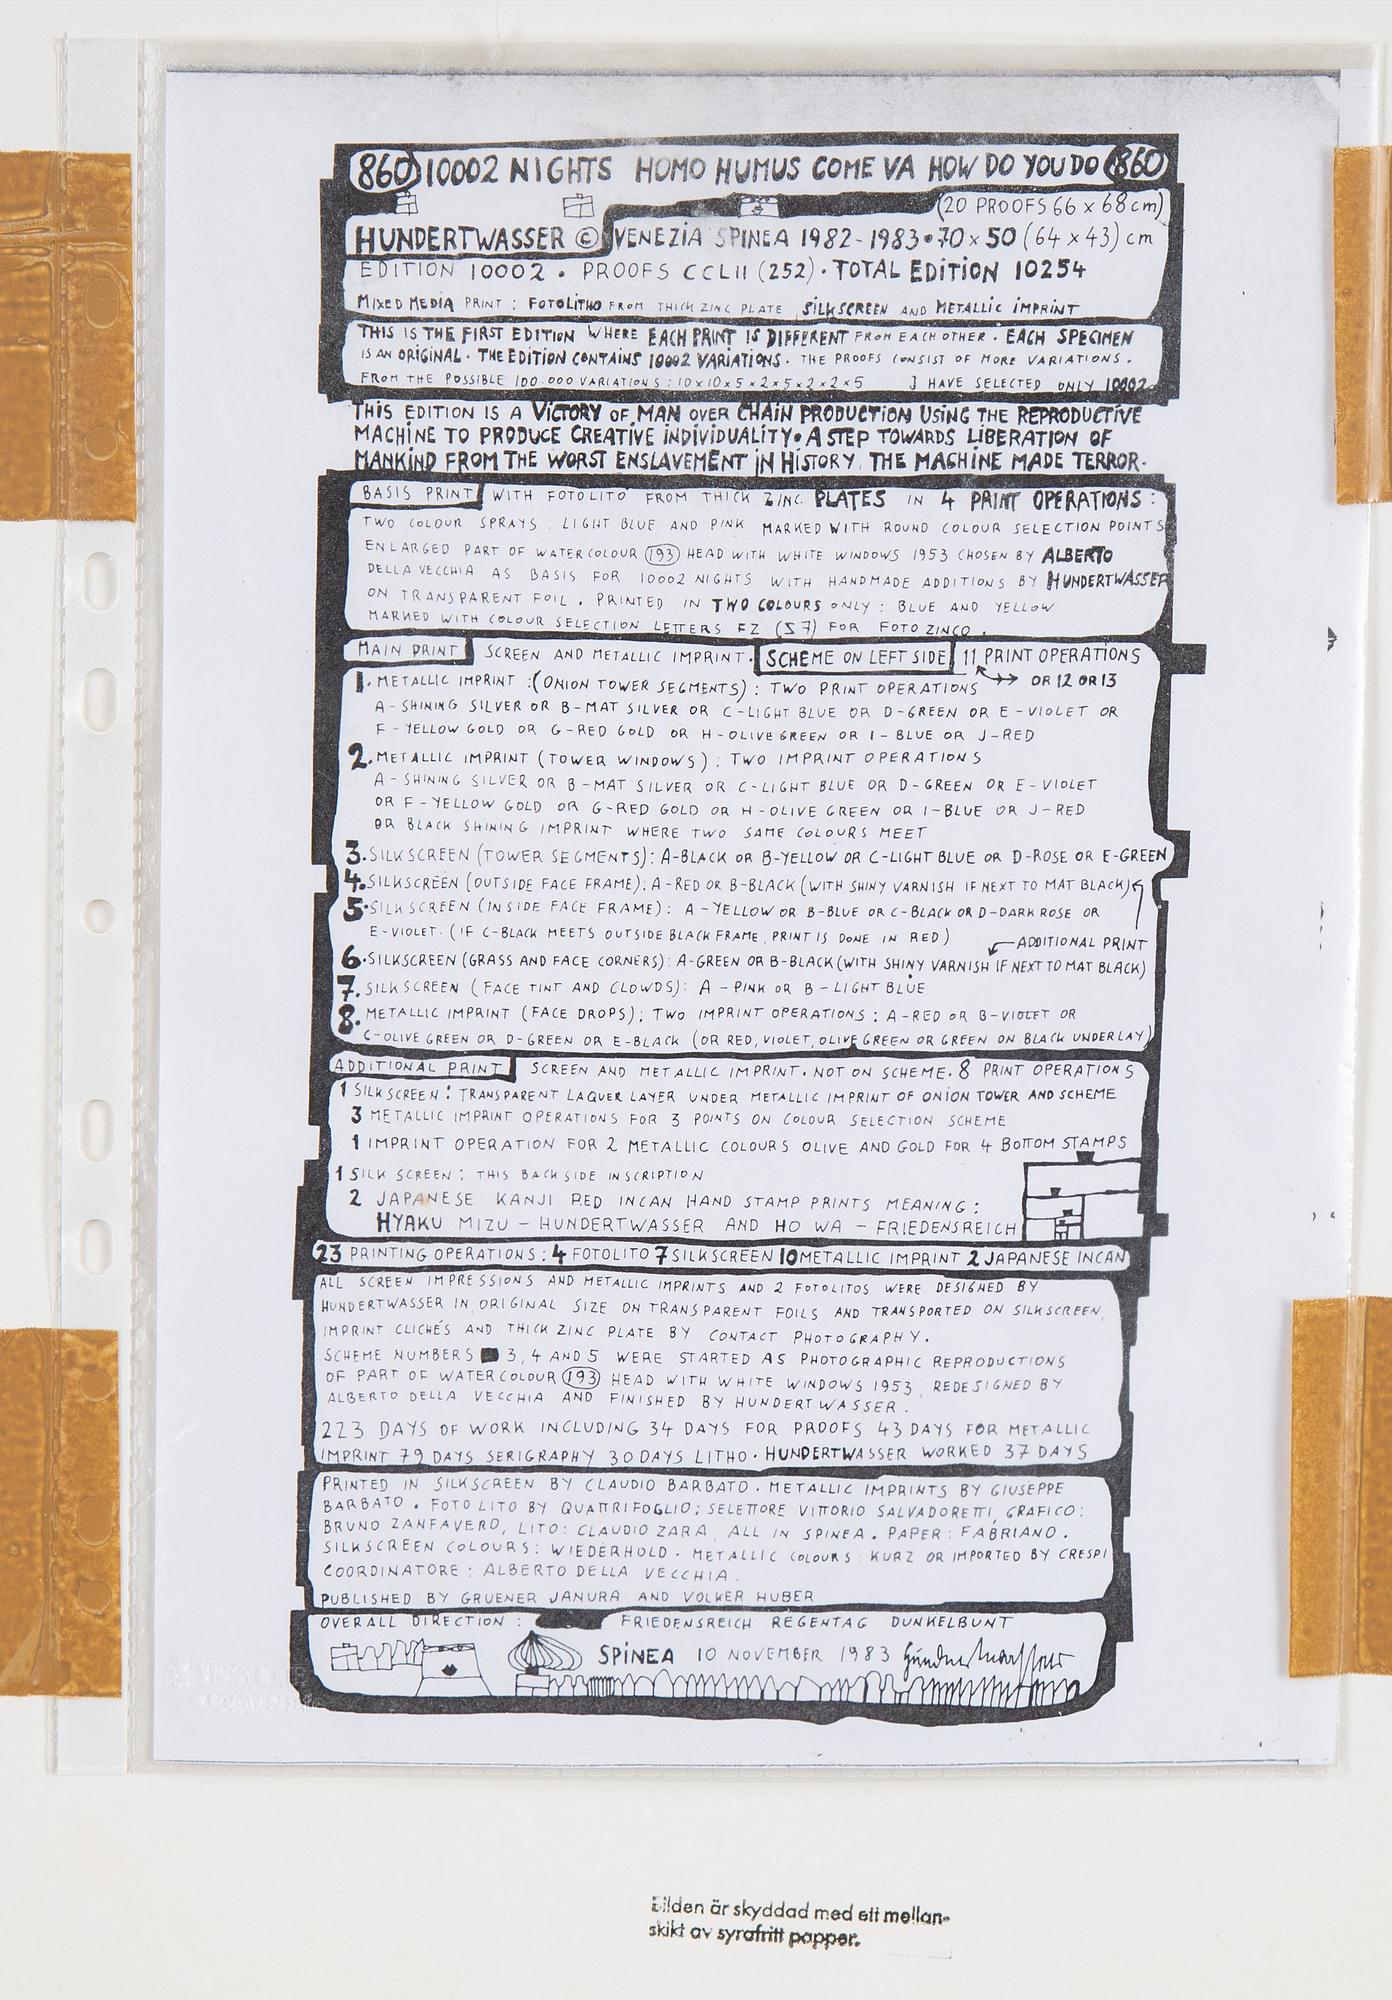 860 10002 NIGHTS HOMO HUMUS COME VA HOW DO YOU DO 860
(20 PROOFS 66 x 68 cm)
HUNDERTWASSER © VENEZIA SPINEA 1982-1983 • 70 x 50 (64 x 43) cm
EDITION 10002 . PROOFS CCLII (252) . TOTAL EDITION 10254
MIXED MEDIA PRINT : FOTOLITHO FROM THICK ZINC PLATE SILKSCREEN AND METALLIC IMPRINT
THIS IS THE FIRST EDITION WHERE EACH PRINT IS DIFFERENT FROM EACH OTHER . EACH SPECIMEN
IS AN ORIGINAL . THE EDITION CONTAINS 10002 VARIATIONS . THE PROOFS CONSIST OF MORE VARIATIONS .
FROM THE POSSIBLE 100.000 VARIATIONS : 10x10x5x2x5x2x2x5 J HAVE SELECTED ONLY 10002
THIS EDITION IS A VICTORY OF MAN OVER CHAIN PRODUCTION USING THE REPRODUCTIVE
MACHINE TO PRODUCE CREATIVE INDIVIDUALITY • A STEP TOWARDS LIBERATION OF
MANKIND FROM THE WORST ENSLAVEMENT IN HISTORY, THE MACHINE MADE TERROR .
BASIS PRINT WITH FOTOLITO FROM THICK ZINC PLATES IN 4 PRINT OPERATIONS :
TWO COLOUR SPRAYS : LIGHT BLUE AND PINK MARKED WITH ROUND COLOUR SELECTION POINTS
ENLARGED PART OF WATERCOLOUR 193 HEAD WITH WHITE WINDOWS 1953 CHOSEN BY ALBERTO
DELLA VECCHIA AS BASIS FOR 10002 NIGHTS WITH HANDMADE ADDITIONS BY HUNDERTWASSER
ON TRANSPARENT FOIL . PRINTED IN TWO COLOURS ONLY : BLUE AND YELLOW
MARKED WITH COLOUR SELECTION LETTERS FZ (S7) FOR FOTOZINCO .
MAIN PRINT SCREEN AND METALLIC IMPRINT . SCHEME ON LEFT SIDE 11 PRINT OPERATIONS
1. METALLIC IMPRINT : (ONION TOWER SEGMENTS) : TWO PRINT OPERATIONS OR 12 OR 13
A - SHINING SILVER OR B - MAT SILVER OR C - LIGHT BLUE OR D - GREEN OR E - VIOLET OR
F - YELLOW GOLD OR G - RED GOLD OR H - OLIVE GREEN OR I - BLUE OR J - RED
2. METALLIC IMPRINT (TOWER WINDOWS) : TWO IMPRINT OPERATIONS
A - SHINING SILVER OR B - MAT SILVER OR C - LIGHT BLUE OR D - GREEN OR E - VIOLET
OR F - YELLOW GOLD OR G - RED GOLD OR H - OLIVE GREEN OR I - BLUE OR J - RED
OR BLACK SHINING IMPRINT WHERE TWO SAME COLOURS MEET
3. SILKSCREEN (TOWER SEGMENTS) : A-BLACK OR B-YELLOW OR C-LIGHT BLUE OR D-ROSE OR E-GREEN
4. SILKSCREEN (OUTSIDE FACE FRAME) : A-RED OR B-BLACK (WITH SHINY VARNISH IF NEXT TO MAT BLACK)
5. SILKSCREEN (INSIDE FACE FRAME) : A - YELLOW OR B-BLUE OR C-BLACK OR D-DARK ROSE OR
E-VIOLET . (IF C-BLACK MEETS OUTSIDE BLACK FRAME, PRINT IS DONE IN RED) ADDITIONAL PRINT
6. SILKSCREEN (GRASS AND FACE CORNERS) : A-GREEN OR B-BLACK (WITH SHINY VARNISH IF NEXT TO MAT BLACK)
7. SILKSCREEN (FACE TINT AND CLOWDS) : A - PINK OR B - LIGHT BLUE
8. METALLIC IMPRINT (FACE DROPS) ; TWO IMPRINT OPERATIONS : A-RED OR B-VIOLET OR
C-OLIVE GREEN OR D-GREEN OR E-BLACK (OR RED, VIOLET, OLIVE GREEN OR GREEN ON BLACK UNDERLAY)
ADDITIONAL PRINT SCREEN AND METALLIC IMPRINT . NOT ON SCHEME . 8 PRINT OPERATIONS
1 SILKSCREEN : TRANSPARENT LAQUER LAYER UNDER METALLIC IMPRINT OF ONION TOWER AND SCHEME
3 METALLIC IMPRINT OPERATIONS FOR 3 POINTS ON COLOUR SELECTION SCHEME
1 IMPRINT OPERATION FOR 2 METALLIC COLOURS OLIVE AND GOLD FOR 4 BOTTOM STAMPS
1 SILK SCREEN : THIS BACKSIDE INSCRIPTION
2 JAPANESE KANJI RED INCAN HAND STAMP PRINTS MEANING :
HYAKU MIZU - HUNDERTWASSER AND HO WA - FRIEDENSREICH
23 PRINTING OPERATIONS : 4 FOTOLITO 7 SILKSCREEN 10 METALLIC IMPRINT 2 JAPANESE INCAN
ALL SCREEN IMPRESSIONS AND METALLIC IMPRINTS AND 2 FOTOLITOS WERE DESIGNED BY
HUNDERTWASSER IN ORIGINAL SIZE ON TRANSPARENT FOILS AND TRANSPORTED ON SILKSCREEN,
IMPRINT CLICHÉS AND THICK ZINC PLATE BY CONTACT PHOTOGRAPHY .
SCHEME NUMBERS 3, 4 AND 5 WERE STARTED AS PHOTOGRAPHIC REPRODUCTIONS
OF PART OF WATERCOLOUR 193 HEAD WITH WHITE WINDOWS 1953, REDESIGNED BY
ALBERTO DELLA VECCHIA AND FINISHED BY HUNDERTWASSER .
223 DAYS OF WORK INCLUDING 34 DAYS FOR PROOFS 43 DAYS FOR METALLIC
IMPRINT 79 DAYS SERIGRAPHY 30 DAYS LITHO . HUNDERTWASSER WORKED 37 DAYS
PRINTED IN SILKSCREEN BY CLAUDIO BARBATO . METALLIC IMPRINTS BY GIUSEPPE
BARBATO . FOTOLITO BY QUATTRIFOGLIO ; SELETTORE VITTORIO SALVADORETTI, GRAFICO :
BRUNO ZANFAVERO, LITO : CLAUDIO ZARA, ALL IN SPINEA . PAPER : FABRIANO .
SILKSCREEN COLOURS : WIEDERHOLD . METALLIC COLOURS : KURZ OR IMPORTED BY CRESPI
COORDINATORE : ALBERTO DELLA VECCHIA .
PUBLISHED BY GRUENER JANURA AND VOLKER HUBER
OVERALL DIRECTION : FRIEDENSREICH REGENTAG DUNKELBUNT
SPINEA 10 NOVEMBER 1983 Hundertwasser
Bilden är skyddad med ett mellan-
skikt av syrafritt papper.